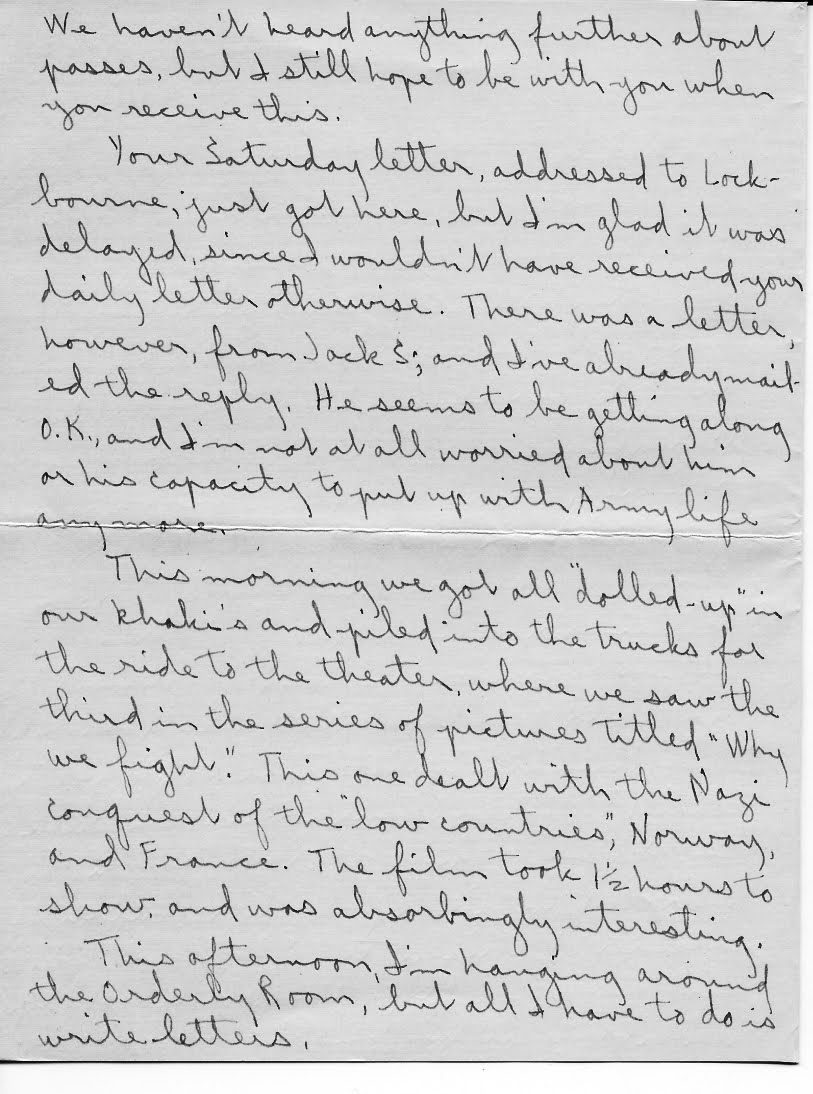 We haven't heard anything further about
passes, but I still hope to be with you when
you receive this.
Your Saturday letter, addressed to Lock-
bourne, just got here, but I'm glad it was
delayed, since I wouldn't have received your
daily letter otherwise. There was a letter,
however, from Jack S; and I've already mail-
ed the reply. He seems to be getting along
O.K., and I'm not at all worried about him
or his capacity to put up with Army life
anymore.
This morning we got all "dolled-up" in
our khaki's and piled into the trucks for
the ride to the theater, where we saw the
third in the series of pictures titled "Why
we fight". This one dealt with the Nazi
conquest of the "low countries", Norway,
and France. The film took 1½ hours to
show, and was absorbingly interesting.
This afternoon, I'm hanging around
the Orderly Room, but all I have to do is
write letters.